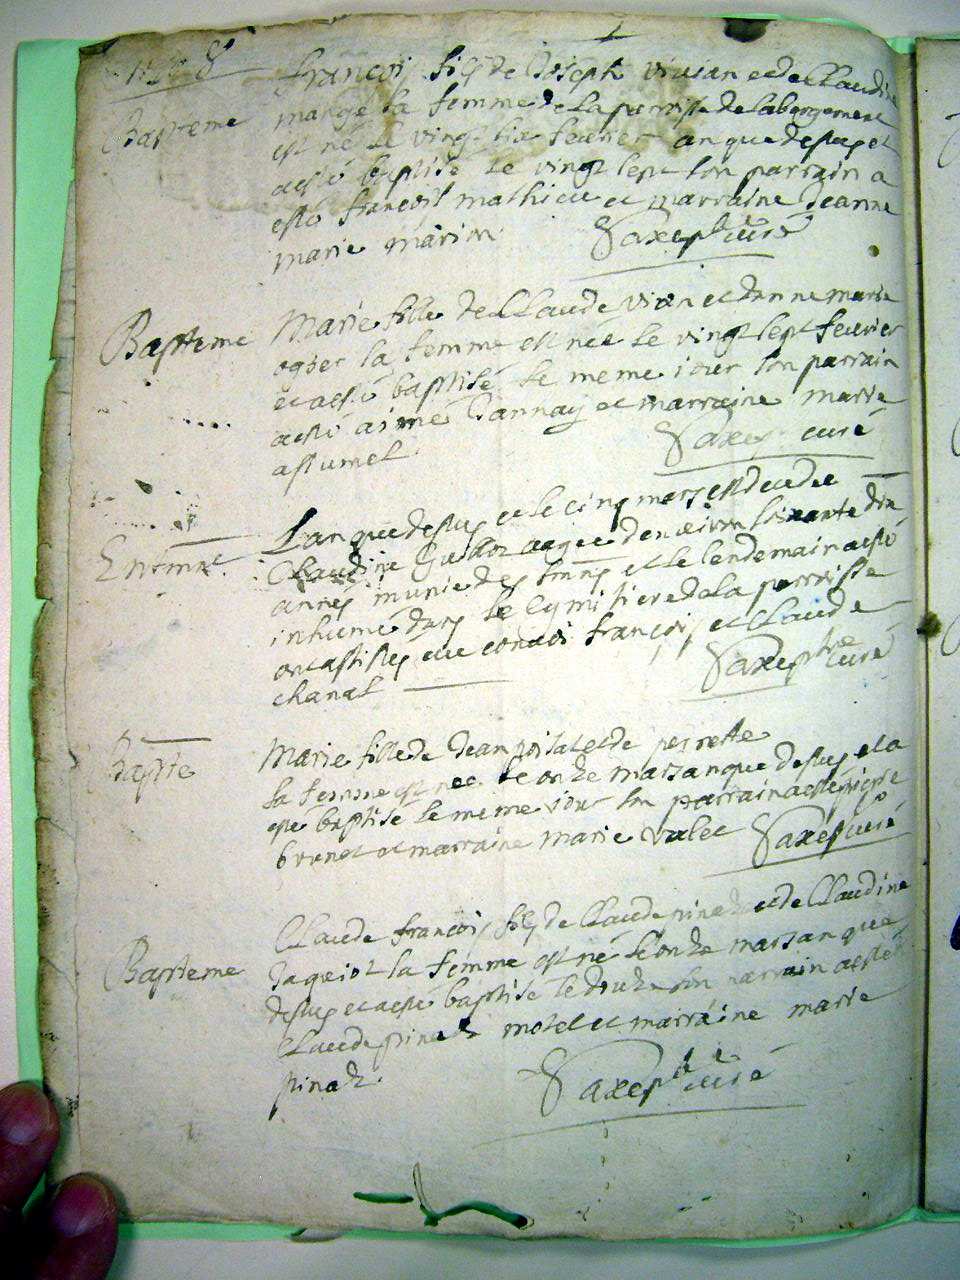 françois fils de Joseph vivian et de Claudine
Bapteme
mange sa femme de la parroisse de labergement
est né le vingt six feuvrier an que desus et
a esté baptisé le vingt sept son parrain a
esté françois mathieu et marraine Jeanne
marie marin curé
Bapteme
Marie fille de Claude vion et danne marie
ogier sa femme est née le vingt sept feuvrier
et a esté baptisé le meme iour son parrain
a esté aimé et marraine marie
curé
Enterrmt
Lan que desus et le cinq mars est decedee
Claudine aagee denviron soixante dix
annes munie des et le lendemain a esté
inhumé dans le Cymistiere de la parroisse
ont assistes au convoi françois et Claude
chanal curé
Bapte
Marie fille de Jean et de perrette
sa femme est nee le onze mars an que desus et a
este baptise le meme iour son parrain a esté
brunet et marraine marie valet curé
Bapteme
Claude françois fils de Claude pinaz et de Claudine
Jaquiot sa femme est né le onze mars an que
desus et a esté baptise le douze son parrain a esté
Claude pinaz motel et marraine marie
pinaz
curé